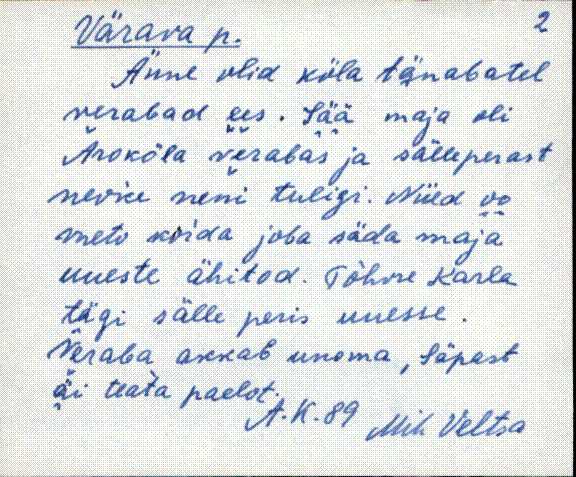 2
Värava p.
Änne olid köla tänabatel
verabad ees. Sää maja oli
Äroköla verabas ja sälleperast
nevice neni tuligi. Nüed oo
meto koida joba säda maja
uueste ähitod. Tõhve Karla
tägi sälle peris uuesse.
Veraba akkab unoma, säpast
äi teata paelot.
A.K.89 Mih Veltsa